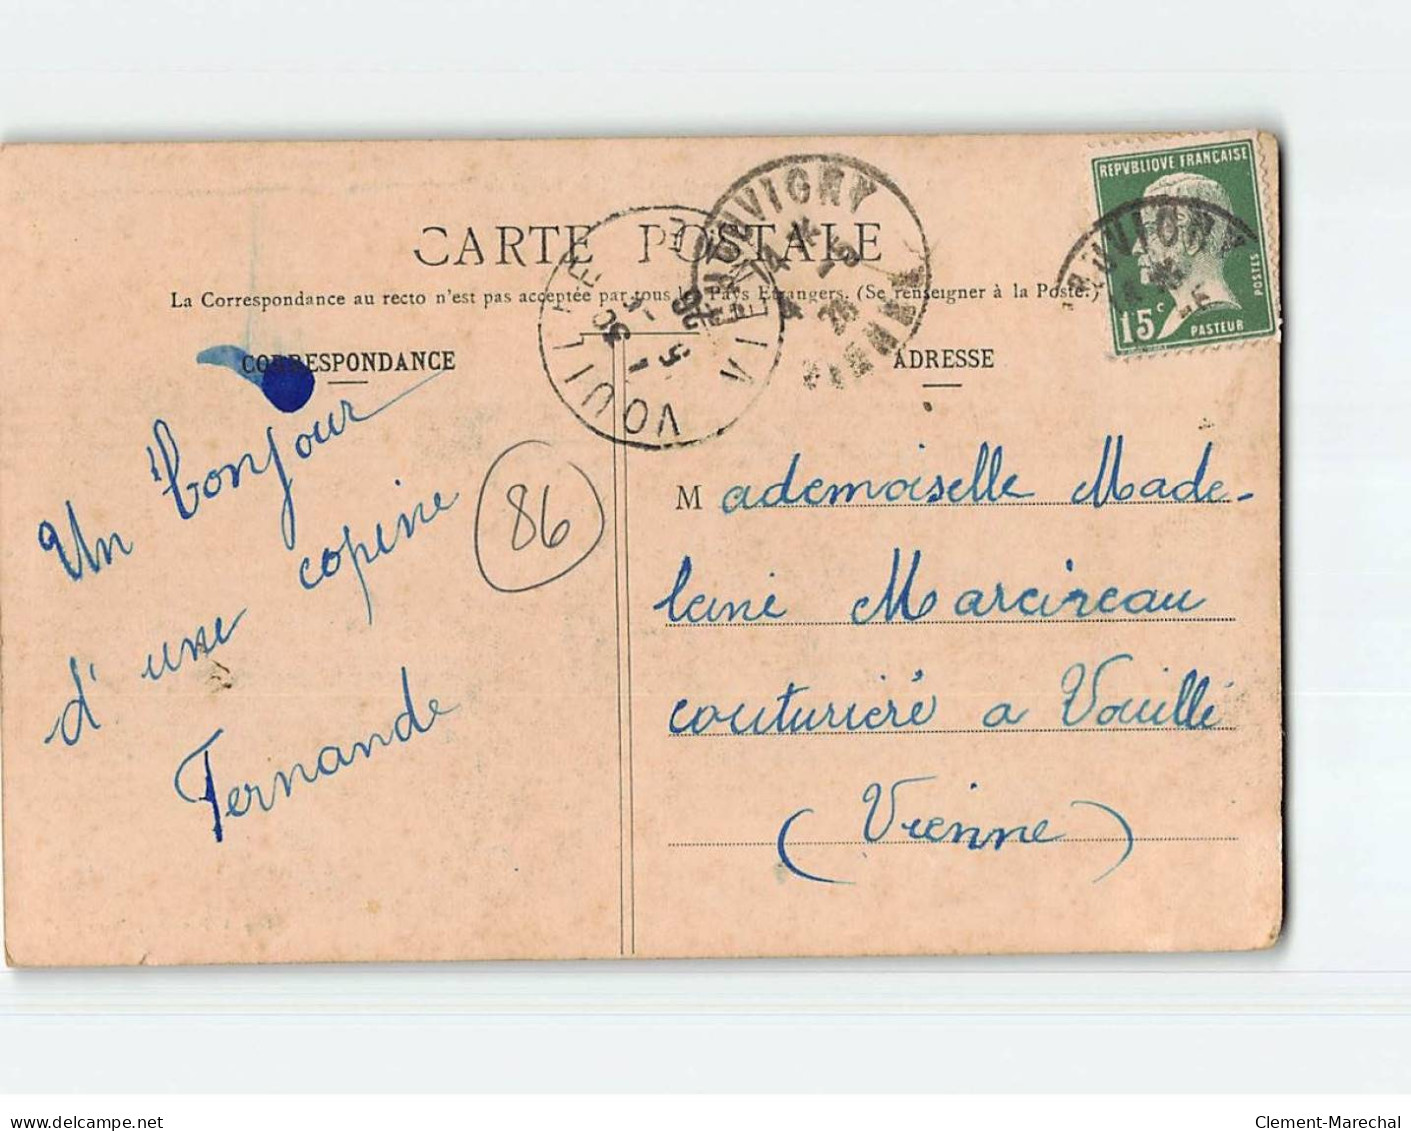 CARTE POSTALE
La Correspondance au recto n'est pas acceptée par tous les Pays Etrangers. (Se renseigner à la Poste.)
CORRESPONDANCE
ADRESSE
REPVBLIQVE FRANÇAISE
15c
POSTES
PASTEUR
VOUILLE
VIENNE
Un bonjour
d'une copine
Fernande
86
Mademoiselle Made-
leine Marcireau
couturière a Vouillé
(Vienne)
delcampe.net
Clement-Marechal